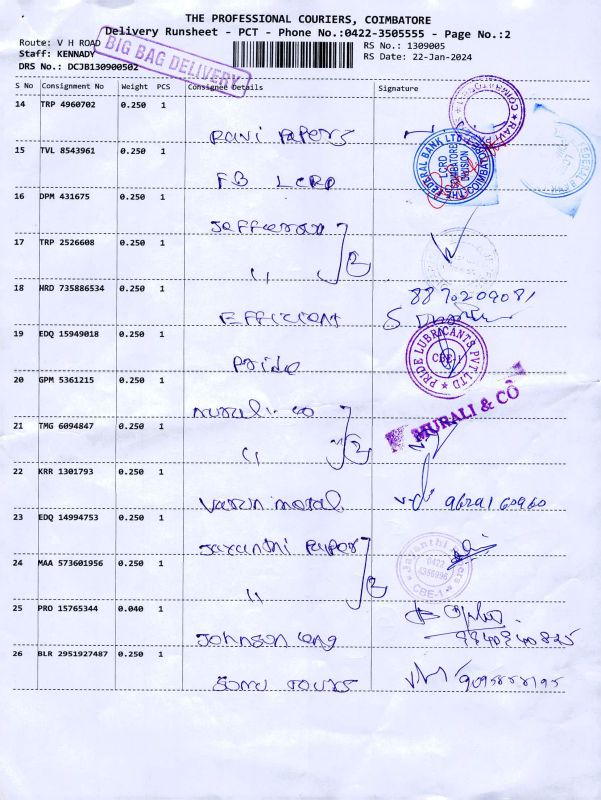 THE PROFESSIONAL COURIERS, COIMBATORE
Delivery Runsheet - PCT - Phone No.:0422-3505555 - Page No.:2
Route: V H ROAD RS No.: 1309005
Staff: KENNADY RS Date: 22-Jan-2024
DRS No.: DCJB130900502
BIG BAG DELIVERY
S No Consignment No Weight PCS Consignee Details Signature
14 TRP 4960702 0.250 1
Ravi Papers
15 TVL 8543961 0.250 1
THE FEDERAL BANK LTD
LCRD
COIMBATORE
DIVISION
FB LCRD
16 DPM 431675 0.250 1
Jefferson
17 TRP 2526608 0.250 1
"
18 HRD 735886534 0.250 1
8870209081
Efficient S.
19 EDQ 15949018 0.250 1
Pride
PRIDE LUBRICANTS PVT LTD
CBE-1
20 GPM 5361215 0.250 1
Murali. co
MURALI & CO
21 TMG 6094847 0.250 1
"
22 KRR 1301793 0.250 1
Varun motal 9629160960
23 EDQ 14994753 0.250 1
Jayanthi Paper
24 MAA 573601956 0.250 1
Jayanthi
0422
CBE-1
"
25 PRO 15765344 0.040 1
Johnson eng
26 BLR 2951927487 0.250 1
Sonu Tours